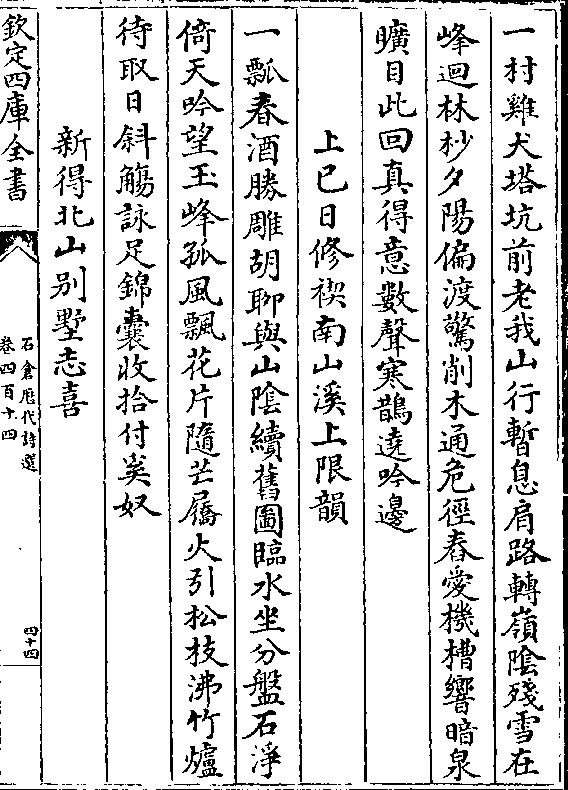 一村雞犬塔坑前老我山行暫息肩路轉嶺陰殘雪在
峰迴林杪夕陽偏渡驚削木通危徑舂愛機槽響暗泉
曠目此回真得意數聲寒鵲遶吟邊
上巳日修禊南山溪上限韻
一瓢春酒勝雕胡聊與山陰續舊圖臨水坐分盤石淨
倚天吟望玉峰孤風飄花片隨芒屩火引松枝沸竹爐
待取日斜觴詠足錦囊收拾付奚奴
新得北山別墅志喜
欽定四庫全書
石倉歷代詩選
卷四百十四
四十四